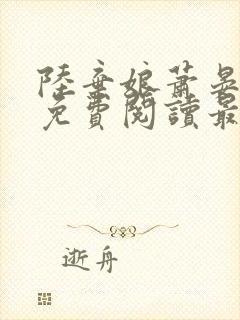 陸棄娘蕭晏
免費閱讀最
逝舟